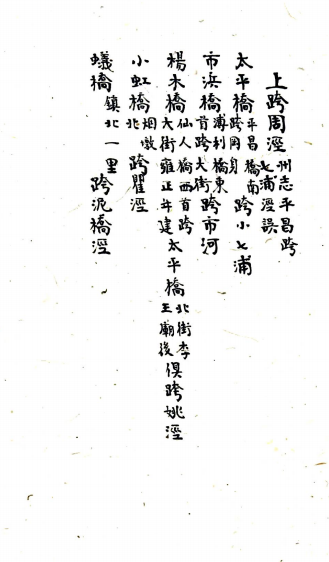 上跨周涇州志平昌跨七浦涇誤
太平橋平昌橋南跨岡身跨小七浦
市浜橋溥利橋東首跨大街跨市河
楊木橋仙人橋西首跨大街雍正年建太平橋北街李王廟後俱跨姚涇
小虹橋烟墩北跨瞿涇
蟻橋鎮北一里跨泥橋涇